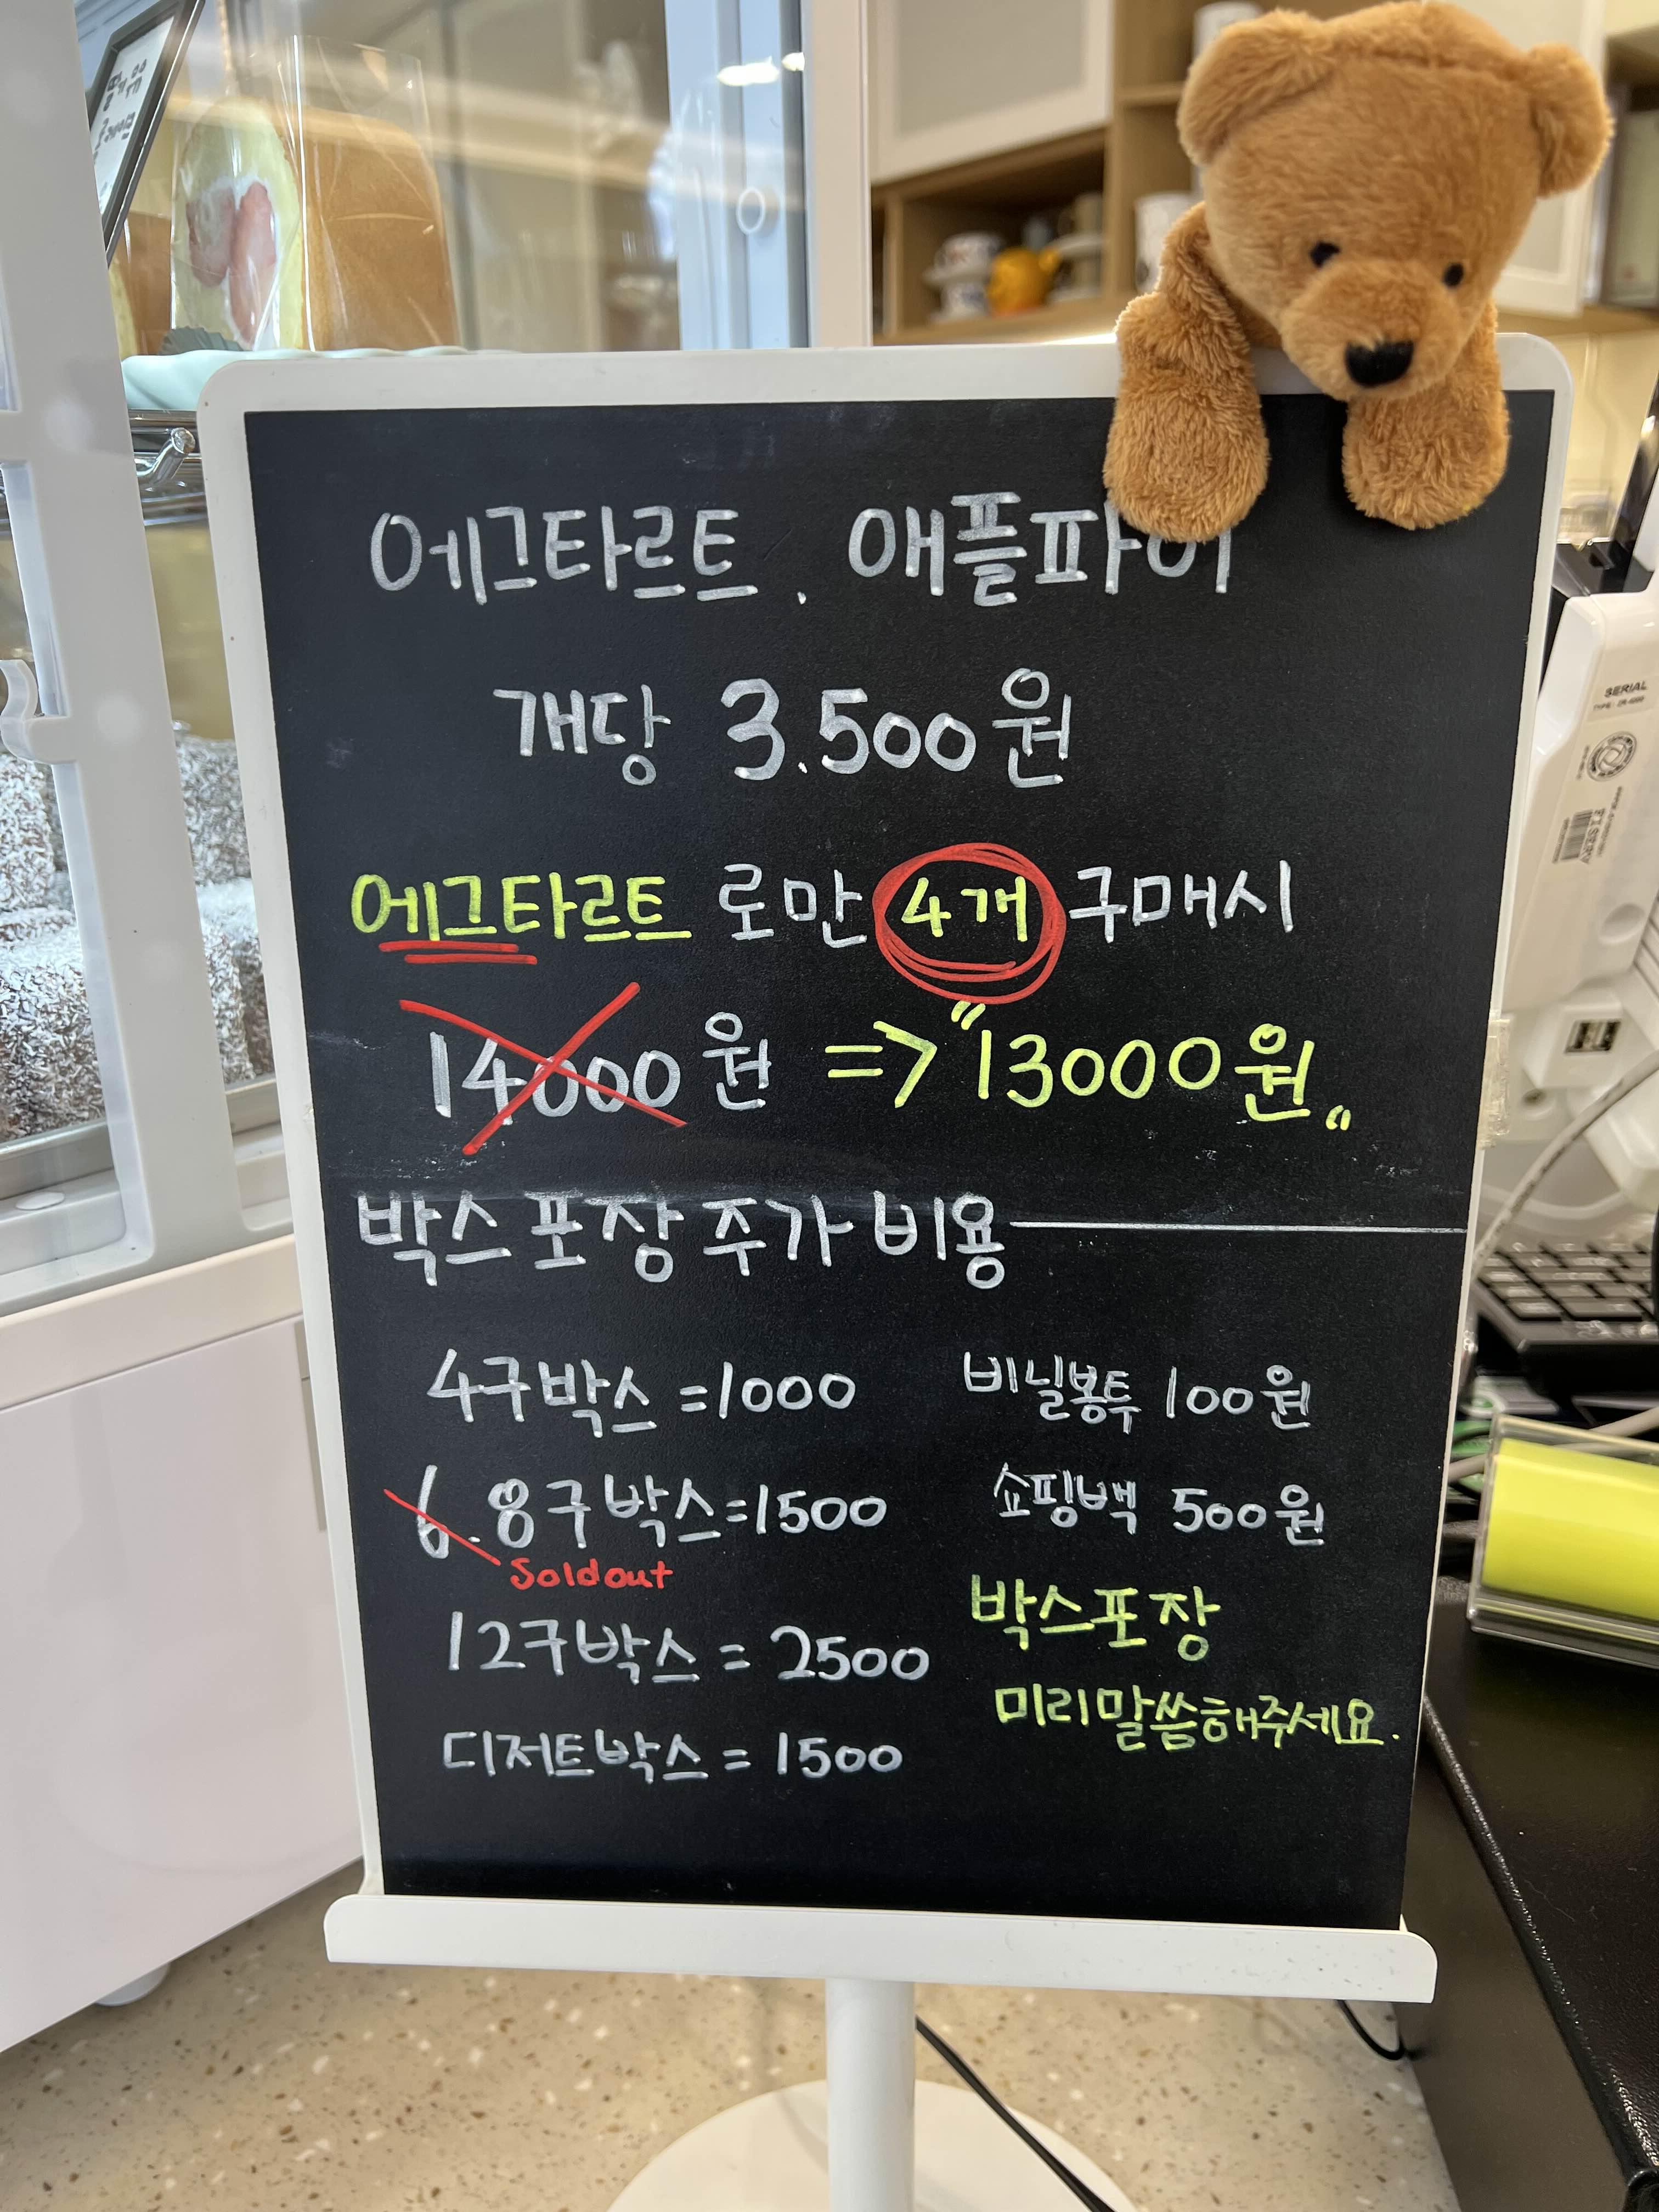 에그타르트. 애플파이
개당 3.500원
에그타르트 로만 4개 구매시
14000원 => "13000원"
박스포장 주가비용
4구박스 =1000
6.8구박스=1500
Soldout
12구박스 = 2500
디저트박스 = 1500
비닐봉투 100원
쇼핑백 500원
박스포장
미리말씀해주세요.
SERIAL